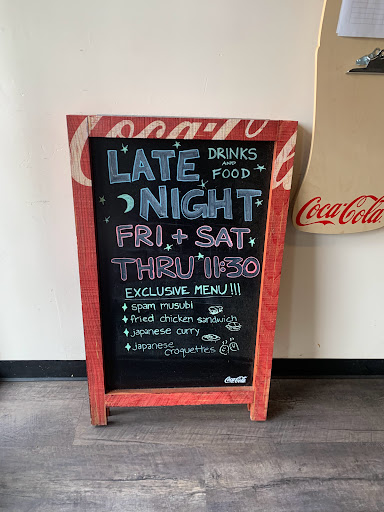 Coca-Cola
LATE DRINKS AND FOOD
NIGHT
FRI + SAT
THRU 11:30
EXCLUSIVE MENU!!!
spam musubi
fried chicken sandwich
japanese curry
japanese croquettes
Coca-Cola
Coca-Cola